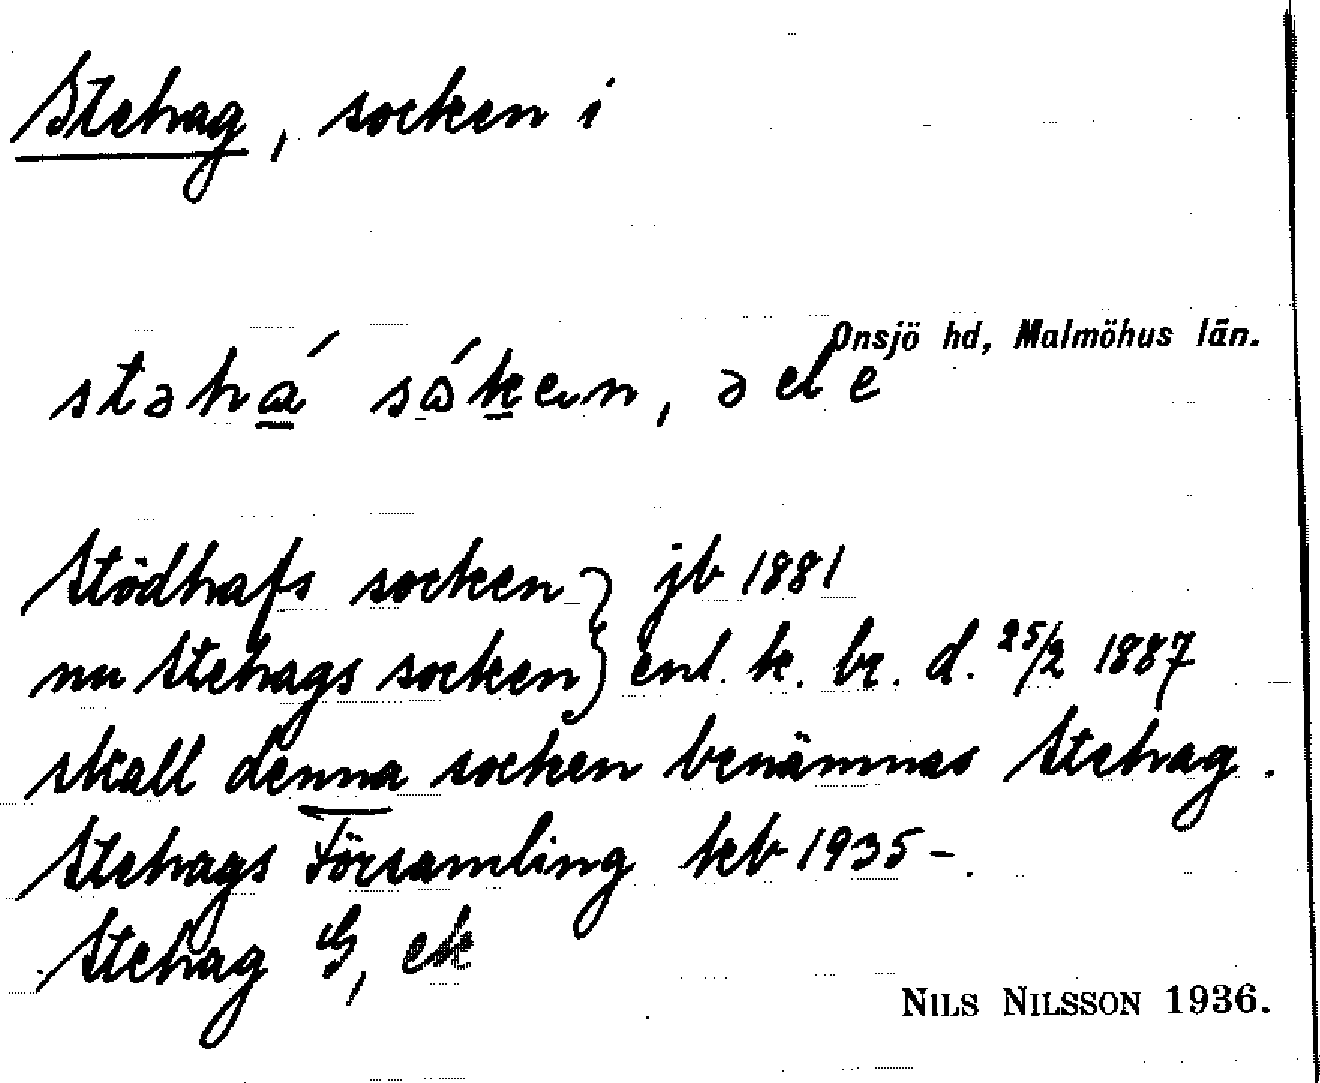 Stehag, socken i
Onsjö hd, Malmöhus län.
stəhá sɷ́ken, ə el e
Stödhafs socken } jb 1881
nu Stehags socken } enl. k. br. d. 25/2 1887
skall denna socken benämnas Stehag.
Stehags Församling kb 1935-.
Stehag G, ek
NILS NILSSON 1936.